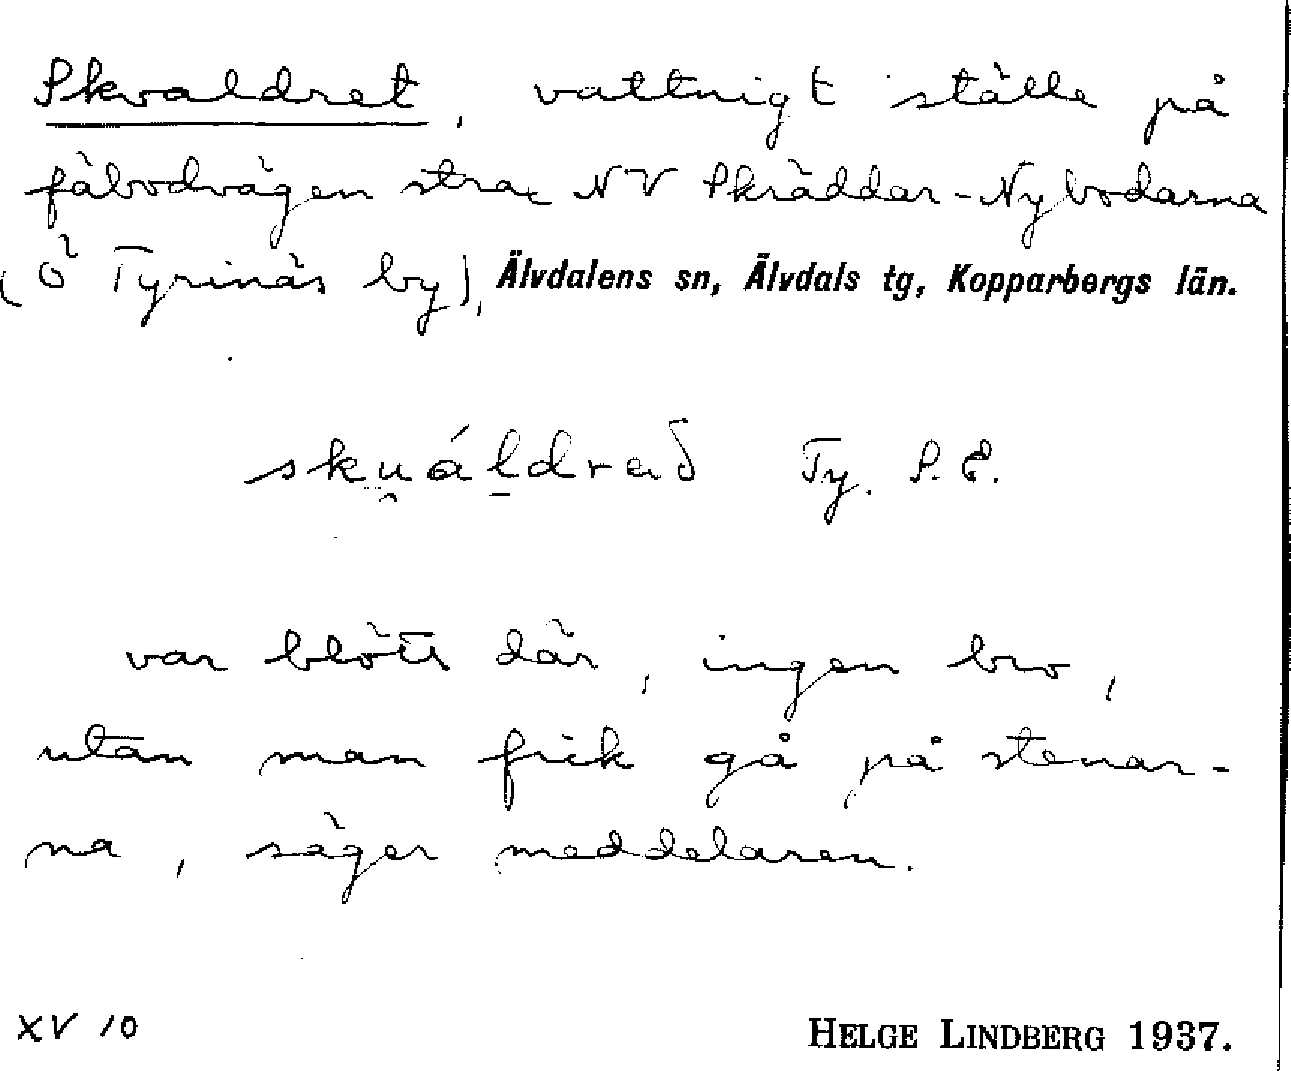 Skvaldret, vattnigt ställe på
fäbodvägen strax NV Skräddar-Nybodarna
(Ö Tyrinäs by), Älvdalens sn, Älvdals tg, Kopparbergs län.
sku̯áḷdrað Ty. S. E.
var blött där, ingen bro,
utan man fick gå på stenar-
na, säger meddelaren.
XV 10
HELGE LINDBERG 1937.